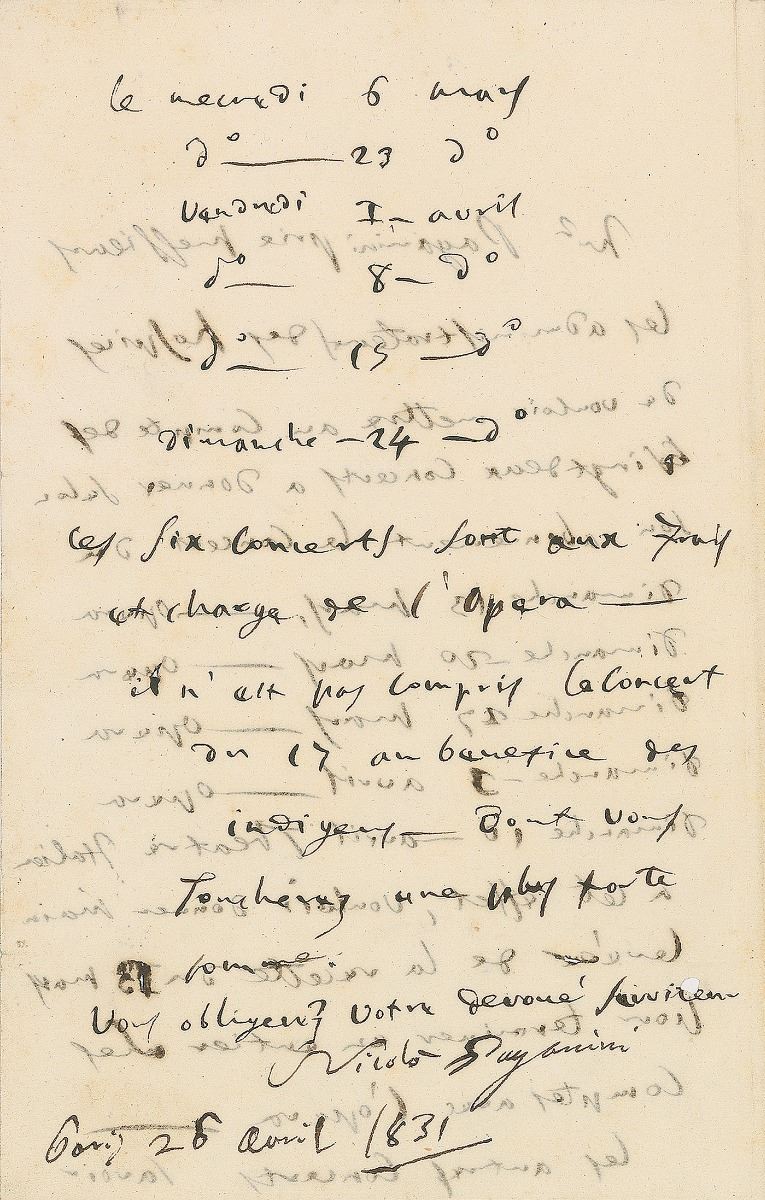 le mecredi 6 mars
d° — 23 d°
Vendredi 1 — avril
d° — 8 — d°
d° — 15 — d°
dimanche — 24 — d°
ces six Concerts sont aux frais
et charge de l'opera —
il n'est pas Compris le Concert
du 17 au benefice des
indigens — Dont vous
Toucherez une plus forte
somme.
Vous obligerez votre devoué serviteur
Nicolò Paganini
Paris 26 avril 1831